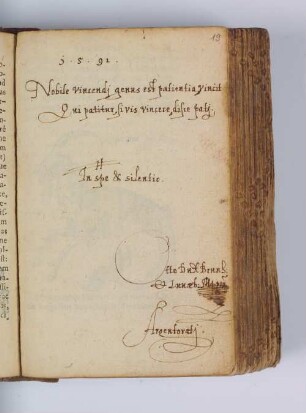 19
1.5.91.
Nobile vincendj genus est patientia, vincit
Qui patitur, si vis vincere, disce patj.
H
In spe & silentio.
Otto Dux Brunß.
& Lunæb.
Argentoratj